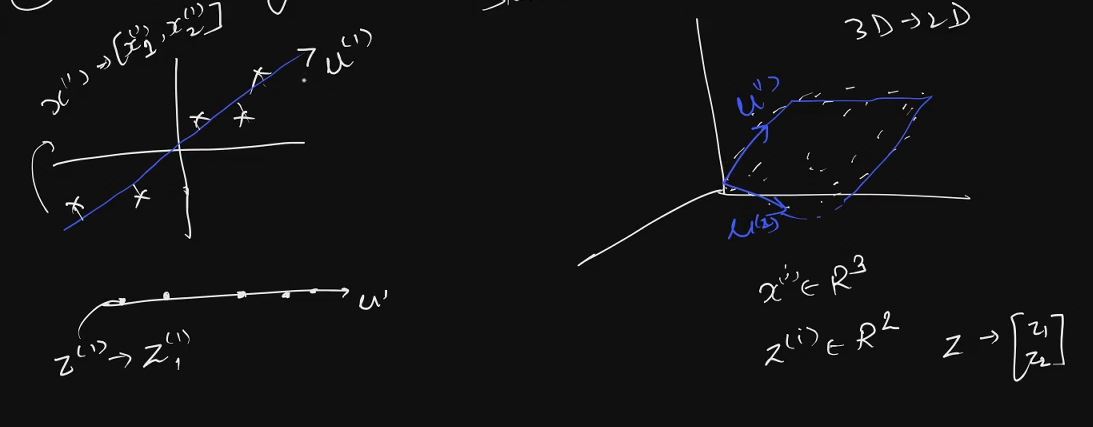 x^(1) → [x_1^(1), x_2^(1)]
u^(1)
u'
z^(1) → z_1^(1)
3D → 2D
u^(1)
u^(2)
x^(i) ∈ R^3
z^(i) ∈ R^2
z → [z_1 z_2]